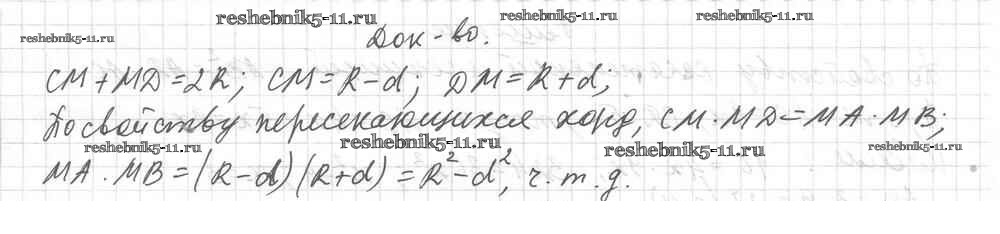 reshebnik5-11.ru reshebnik5-11.ru reshebnik5-11.ru
reshebnik5-11.ru
Док-во.
CM+MD=2R; CM=R-d; DM=R+d;
По свойству пересекающихся хорд, CM·MD=MA·MB;
reshebnik5-11.ru reshebnik5-11.ru reshebnik5-11.ru reshebnik5-11.ru
MA·MB=(R-d)(R+d)=R²-d², ч.т.д.